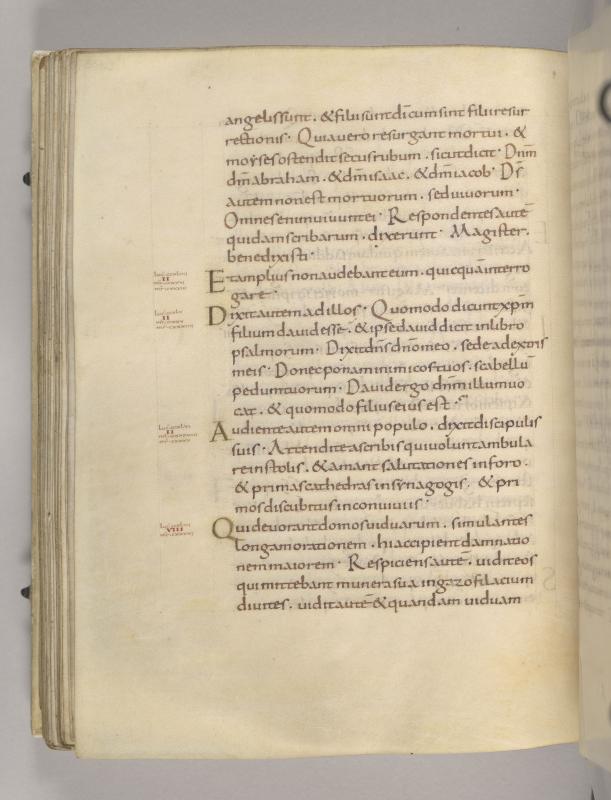 angeli sunt · & filii sunt dī cum sint filii resur
rectionis · Quia uero resurgant mortui · &
moyses ostendit secus rubum · sicut dicit · Dnm̄
dm̄ abraham · & dm̄ isaac · & dm̄ iacob · Ds̄
autem non est mortuorum · sed uiuorum ·
Omnes enim uiuunt ei · Respondentes autē
quidam scribarum · dixerunt · Magister ·
bene dixisti ·
Et amplius non audebant eum · quicquā interro
gare ·
Dixit autem ad illos · Quomodo dicunt xp̄m
filium dauid esse · & ipse dauid dicit in libro
psalmorum · Dixit dn̄s dn̄o meo · sede a dextris
meis · Donec ponam inimicos tuos · scabellū
pedum tuorum · Dauid ergo dn̄m illum uo
cat · & quomodo filius eius est ·
Audiente autem omni populo · dixit discipulis
suis · Attendite a scribis qui uolunt ambula
re in stolis · & amant salutationes in foro ·
& primas cathedras in synagogis · & pri
mos discubitus in conuiuiis ·
Qui deuorant domos uiduarum · simulantes
longam orationem · hi accipient damnatio
nem maiorem · Respiciens autē · uidit eos
qui mittebant munera sua in gazofilacium
diuites · uidit autē & quandam uiduam
II
II
II
VIII